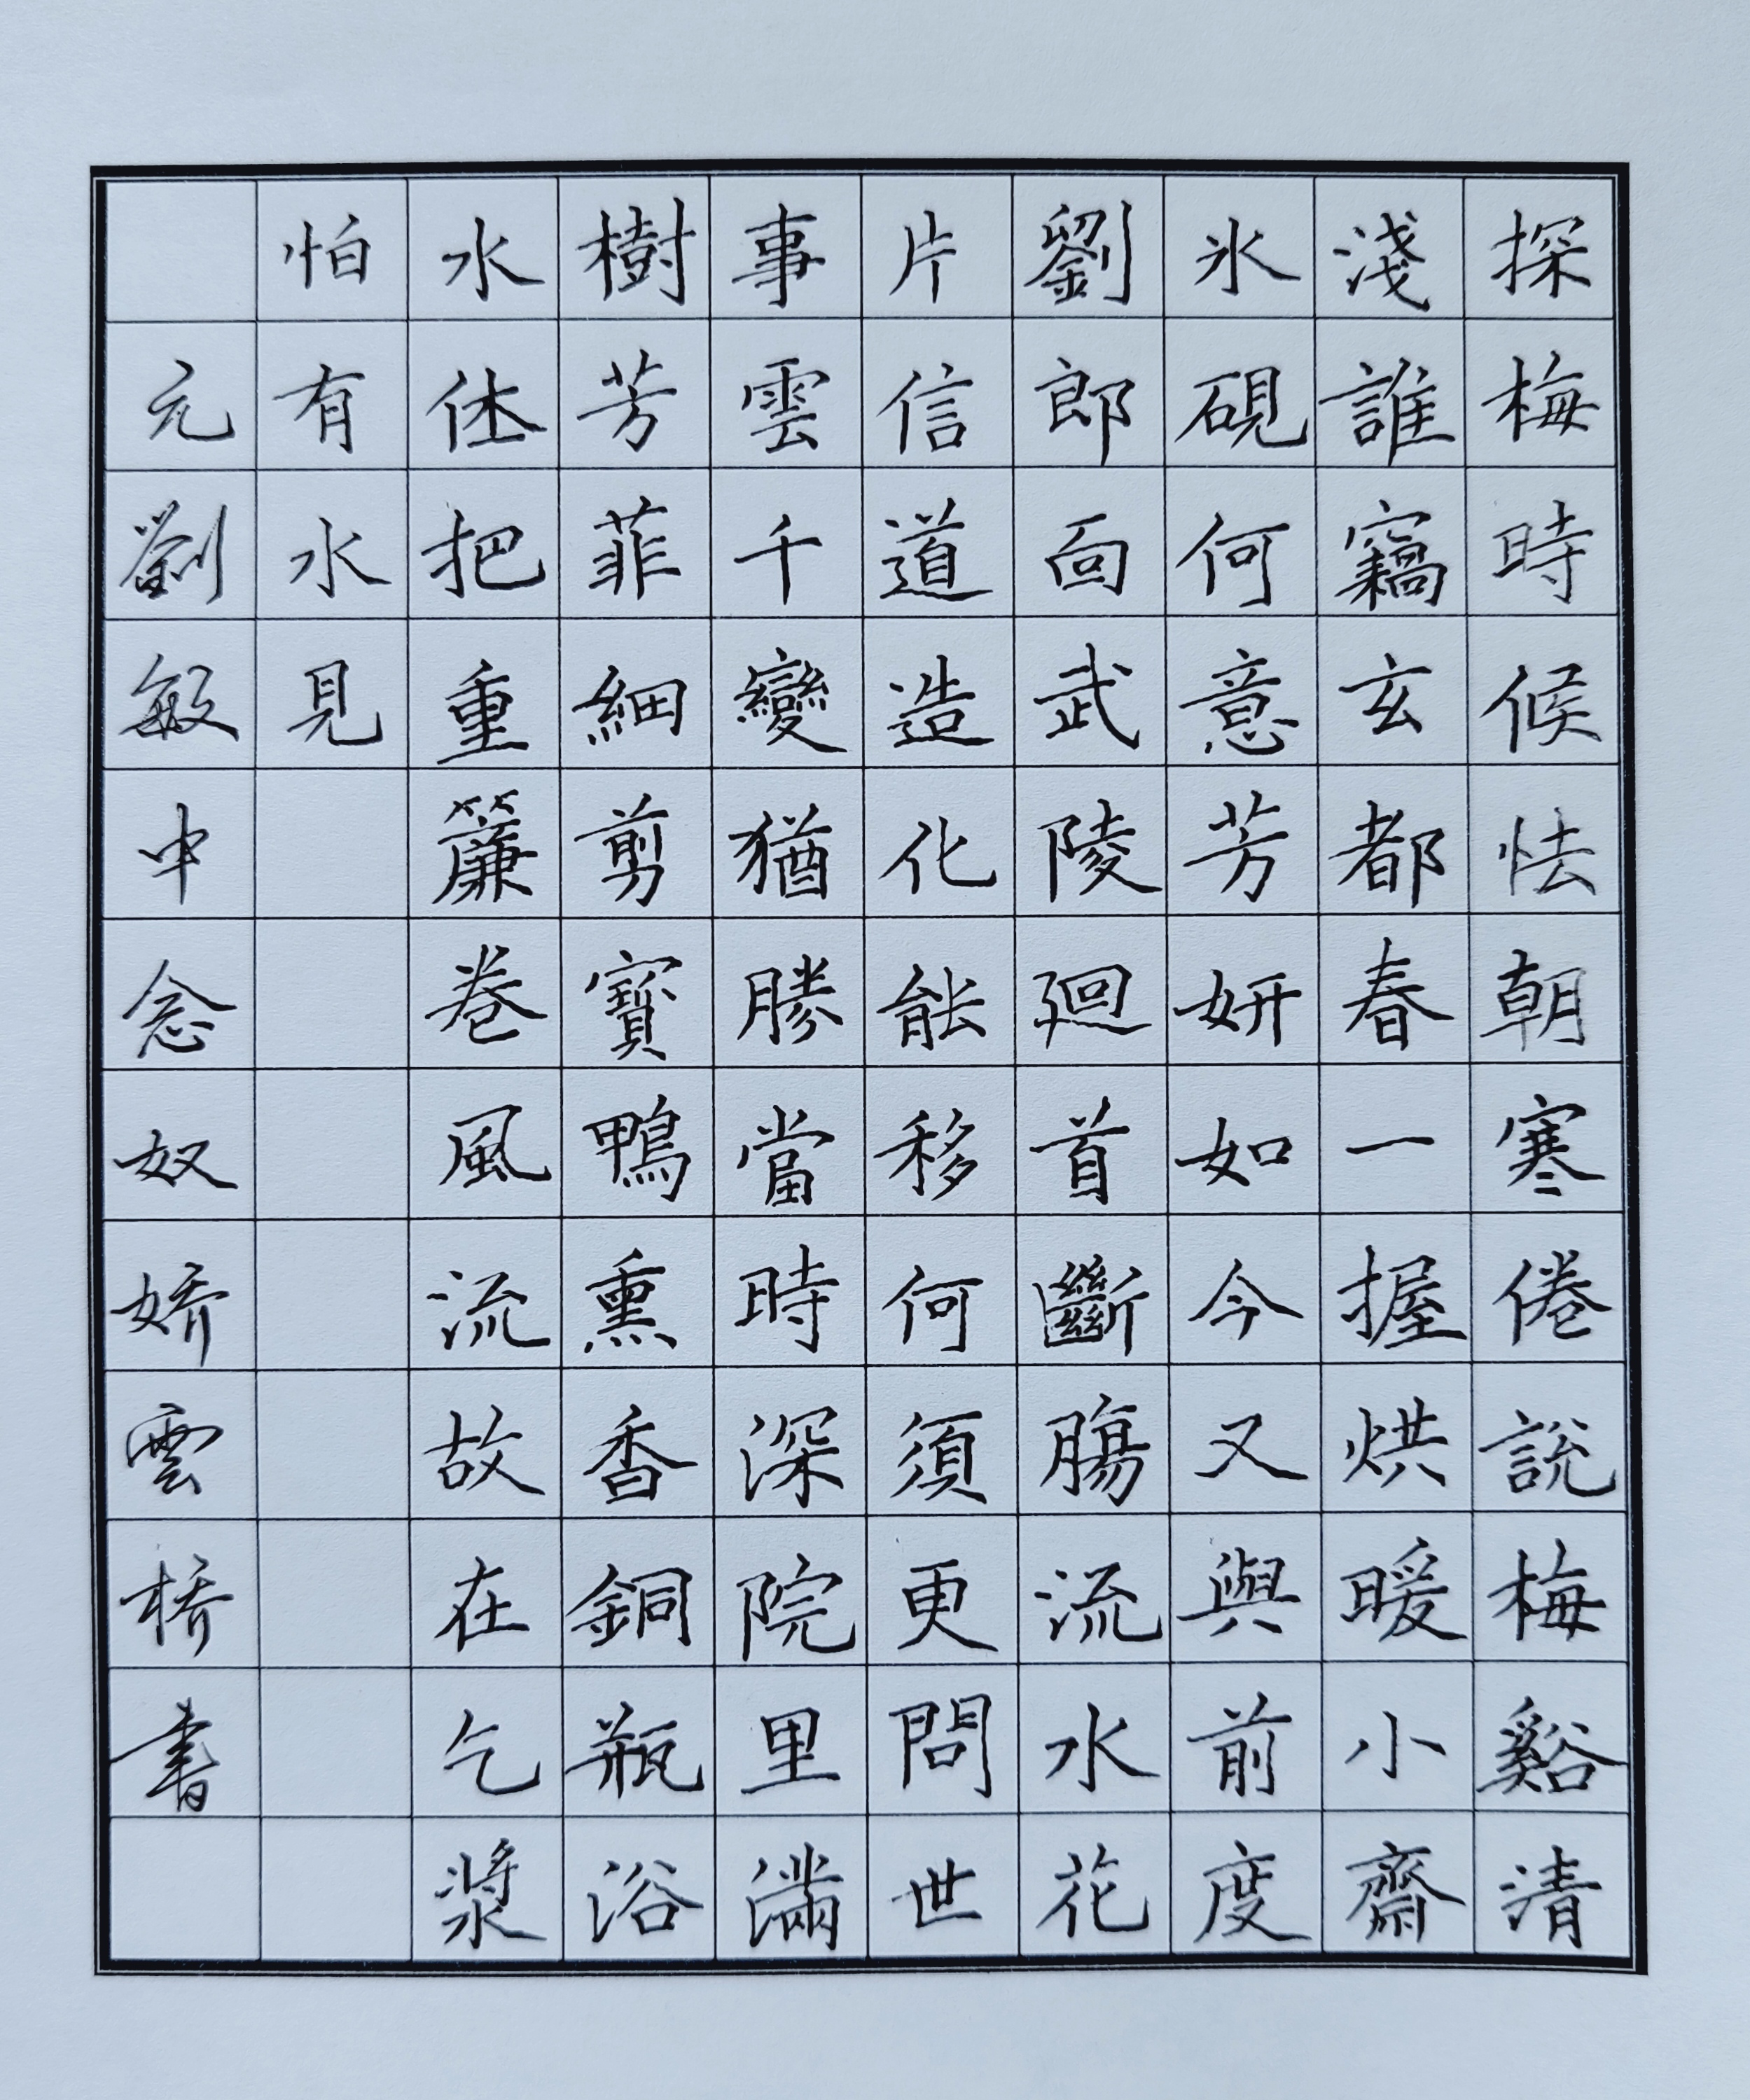 探梅時候怯朝寒倦說梅谿清
淺誰竊玄都春一握烘暖小齋
氷硯何意芳妍如今又與前度
劉郎面武陵廻首斷腸流水花
片信道造化能移何須更問世
事雲千變猶勝當時深院里滿
樹芳菲細剪寶鴨熏香銅瓶浴
水休把重簾卷風流故在乞漿
怕有水見
元劉敏中念奴娇雲桥書